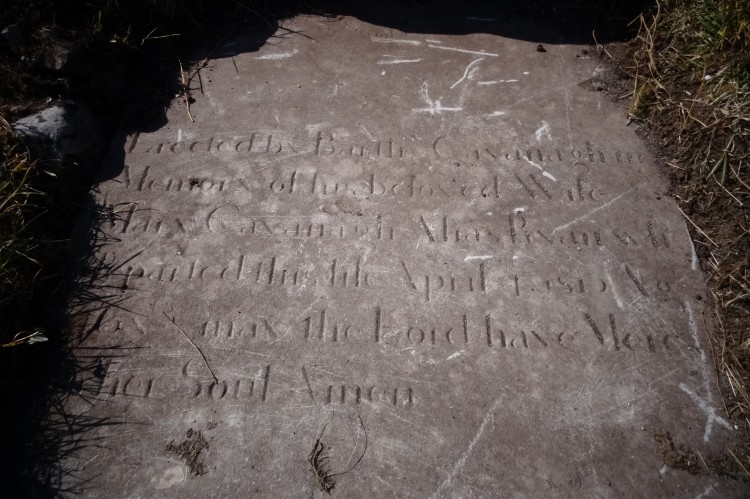 Erected by Barth Cavanagh in
Memory of his beloved Wife
Mary Cavanagh Alias Ryan wh
Departed this life April
may the Lord have Merc
her Soul Amen